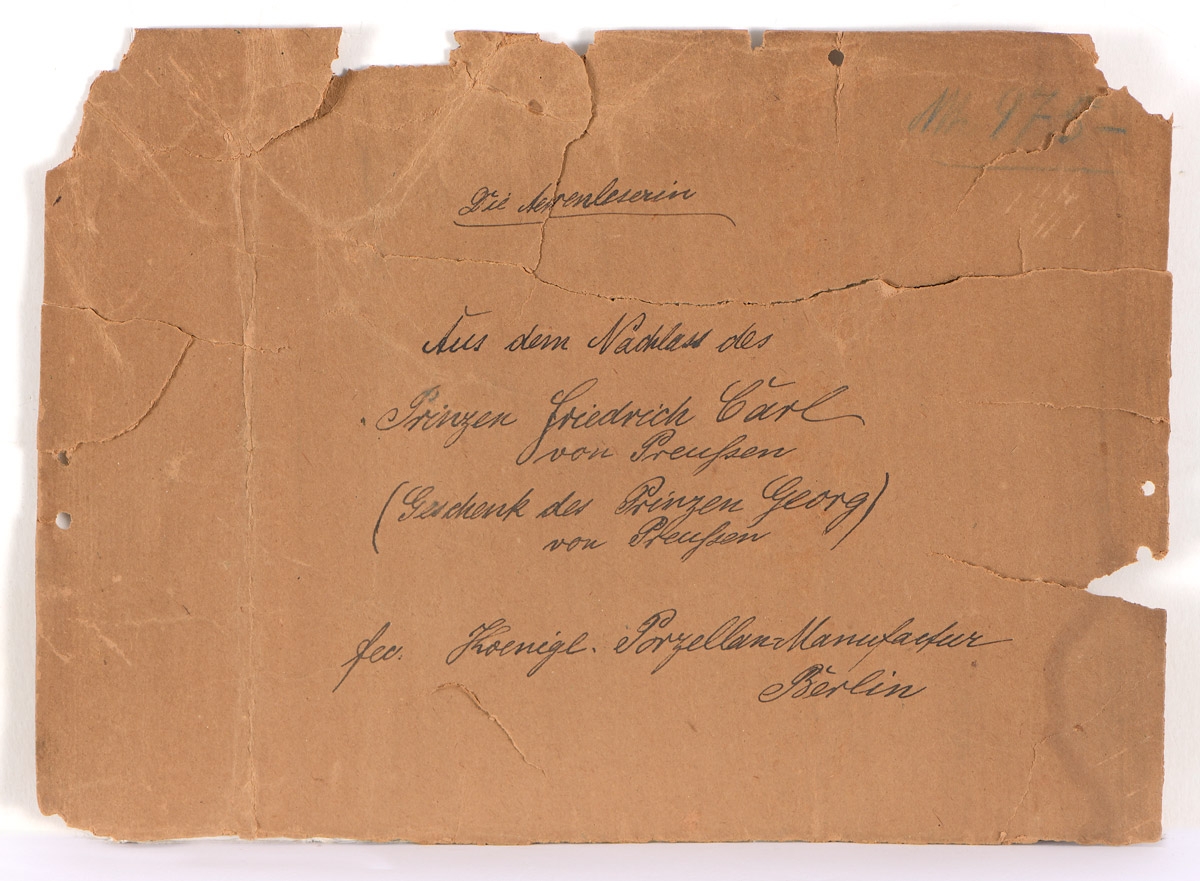 975.–
Die Aehrenleserin
Aus dem Nachlass des
Prinzen Friedrich Carl
von Preußen
(Geschenk des Prinzen Georg)
von Preußen
fec. Koenigl. Porzellan-Manufactur
Berlin